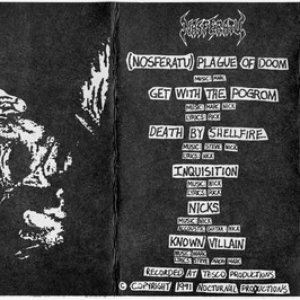 NOSFERATU
(NOSFERATU) PLAGUE OF DOOM
MUSIC: MARC
GET WITH THE POGROM
MUSIC: MARC NICK
LYRICS: NICK
DEATH BY SHELLFIRE
MUSIC: STEVE NICK
LYRICS: NICK
INQUISITION
MUSIC: NICK
LYRICS: NICK
NICKS
MUSIC: NICK
ACOUSTIC GUITAR: NICK
KNOWN VILLAIN
MUSIC: MARC
LYRICS: STEVE MARC NICK
RECORDED AT TESCO PRODUCTIONS
© COPYRIGHT 1991 NOCTURNAL PRODUCTIONS.